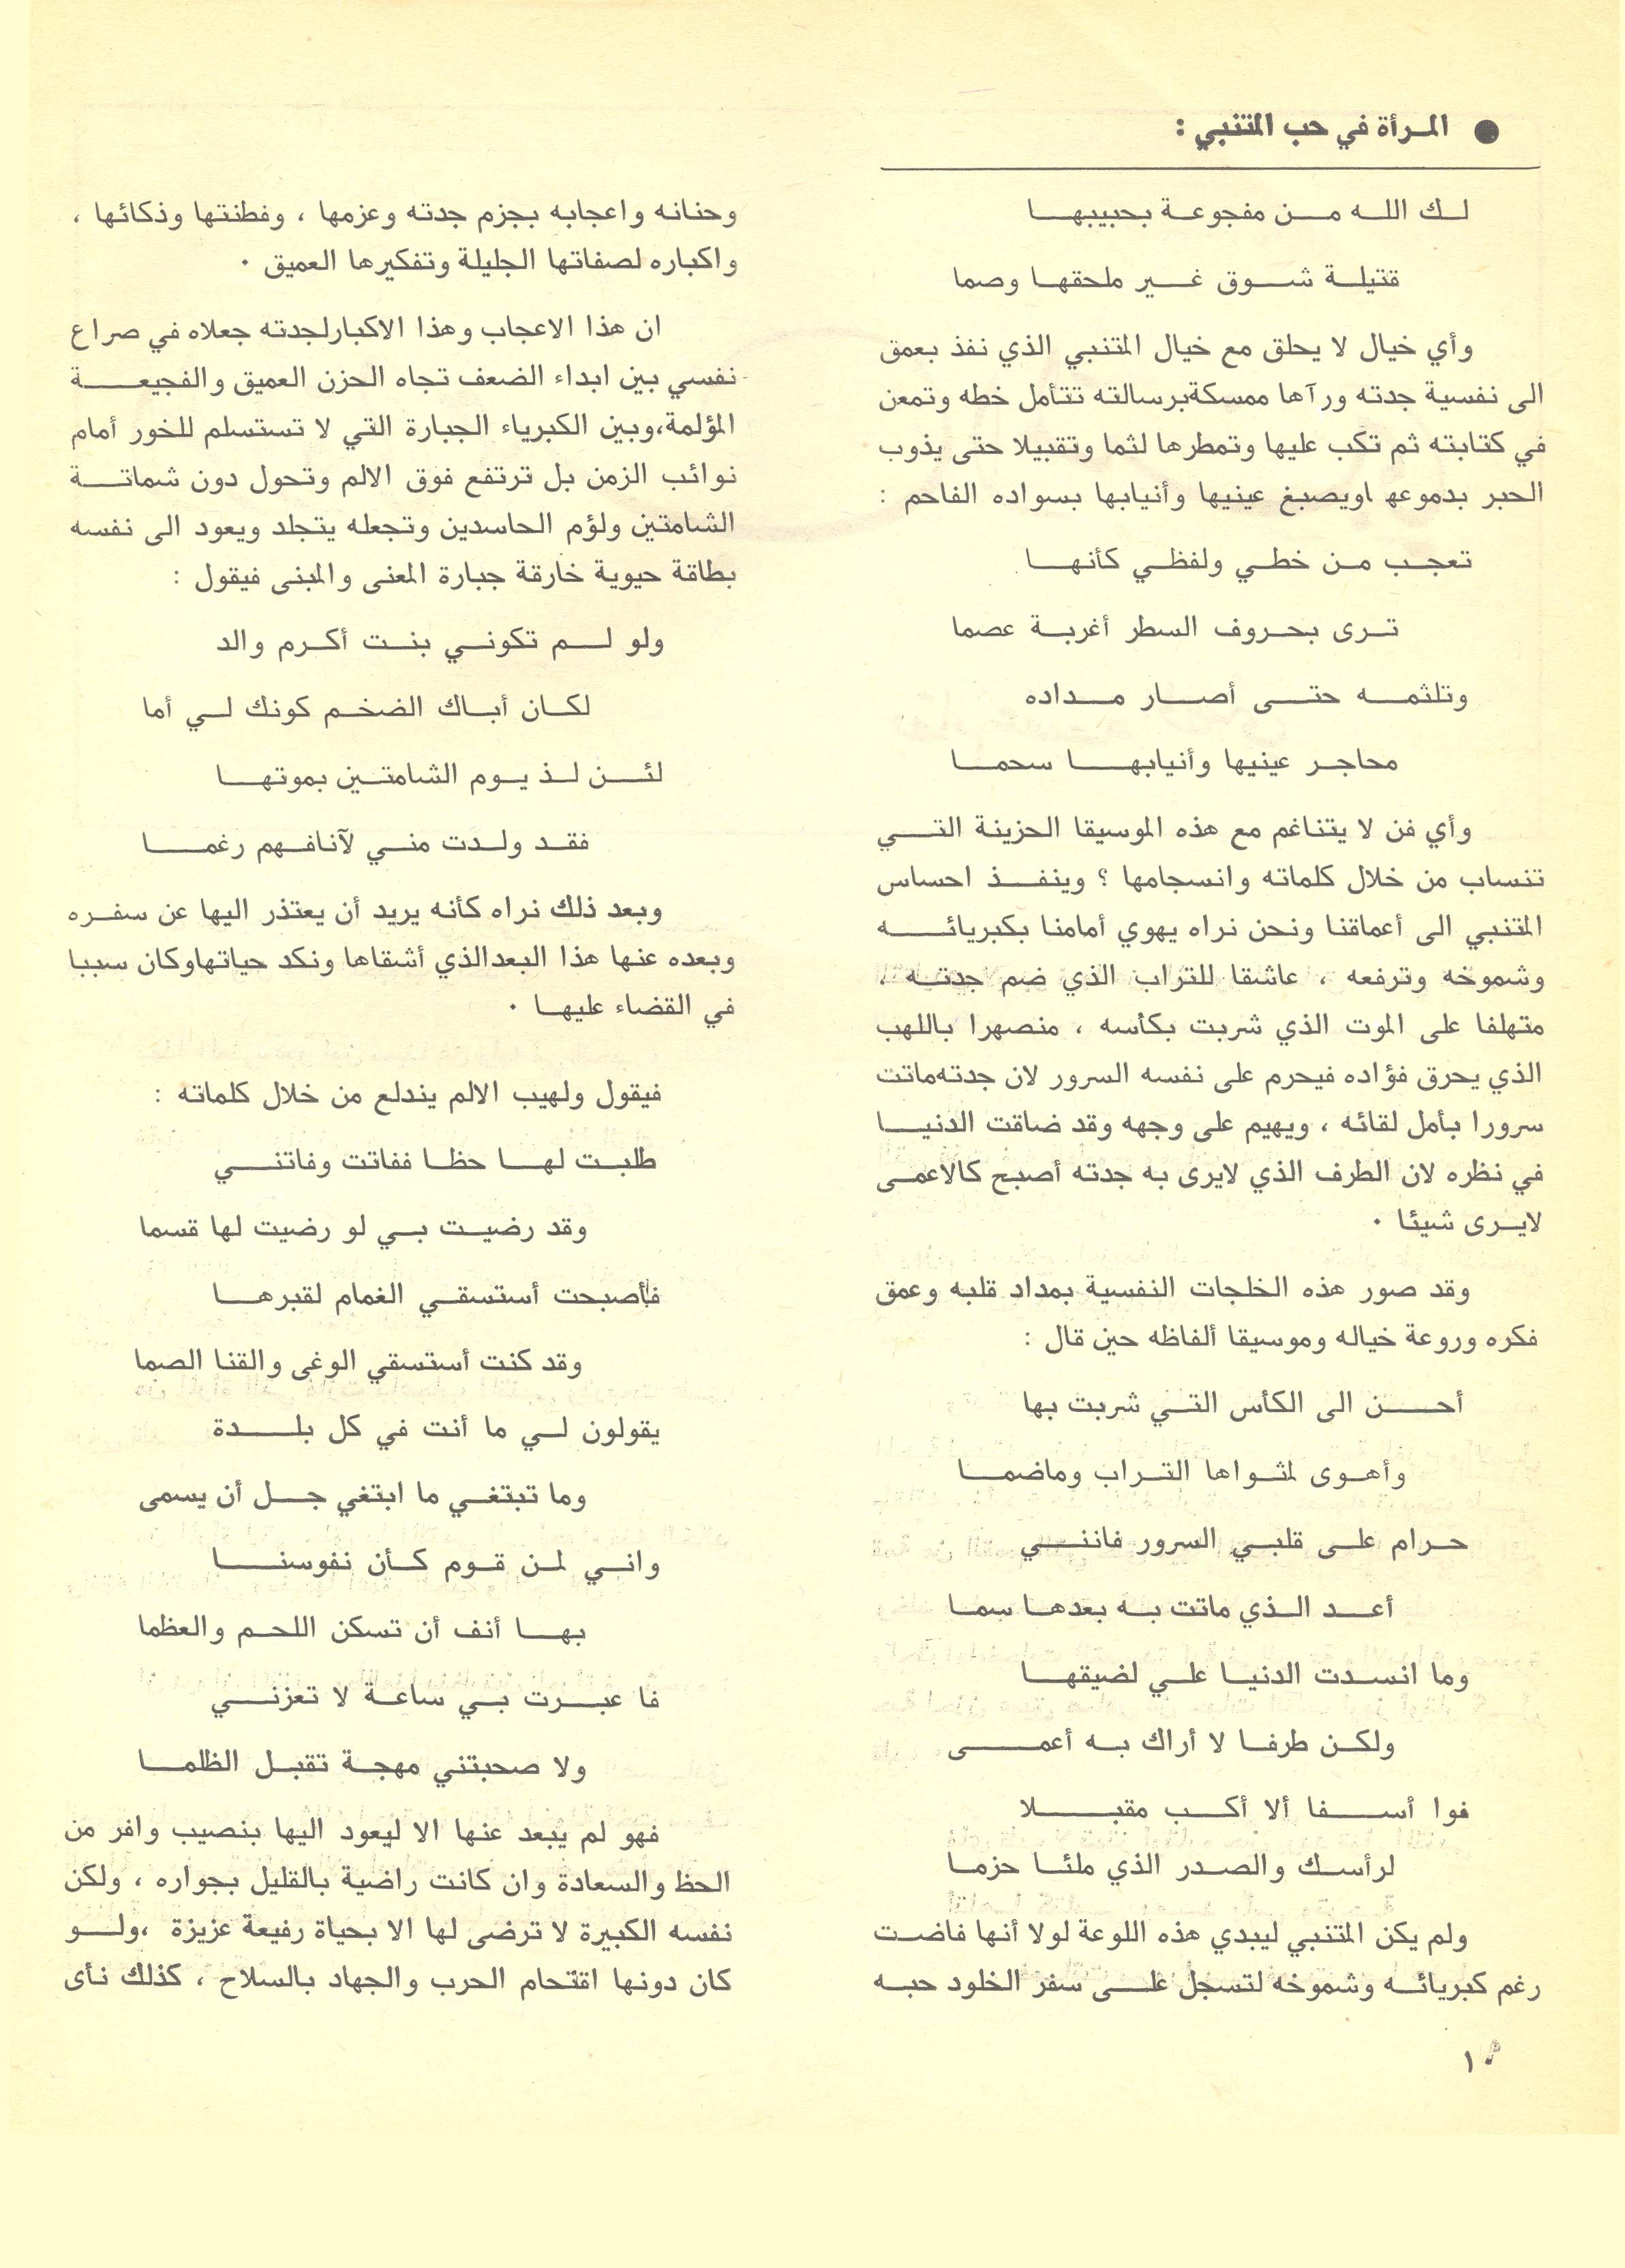 ● المرأة في حب المتنبي :
لك الله من مفجوعة بحبيبها
قتيلة شوق غير ملحقها وصما
وأي خيال لا يحلق مع خيال المتنبي الذي نفذ بعمق
الى نفسية جدته ورآها ممسكةبرسالته تتأمل خطه وتمعن
في كتابته ثم تكب عليها وتمطرها لثما وتقبيلا حتى يذوب
الحبر بدموعها ويصبغ عينيها وأنيابها بسواده الفاحم :
تعجب من خطي ولفظي كأنها
ترى بحروف السطر أغربة عصما
وتلثمه حتى أصار مداده
محاجر عينيها وأنيابها سحما
وأي فن لا يتناغم مع هذه الموسيقا الحزينة التي
تنساب من خلال كلماته وانسجامها ؟ وينفذ احساس
المتنبي الى أعماقنا ونحن نراه يهوي أمامنا بكبريائه
وشموخه وترفعه ، عاشقا للتراب الذي ضم جدته ،
متهلفا على الموت الذي شربت بكأسه ، منصهرا باللهب
الذي يحرق فؤاده فيحرم على نفسه السرور لان جدته ماتت
سرورا بأمل لقائه ، ويهيم على وجهه وقد ضاقت الدنيا
في نظره لان الطرف الذي لايرى به جدته أصبح كالاعمى
لايرى شيئا ٠
وقد صور هذه الخلجات النفسية بمداد قلبه وعمق
فكره وروعة خياله وموسيقا ألفاظه حين قال :
أحن الى الكأس التي شربت بها
وأهوى لمثواها التراب وماضما
حرام على قلبي السرور فانني
أعد الذي ماتت به بعدها سما
وما انسدت الدنيا علي لضيقها
ولكن طرفا لا أراك به أعمى
فوا أسفا ألا أكب مقبلا
لرأسك والصدر الذي ملئا حزما
ولم يكن المتنبي ليبدي هذه اللوعة لولا أنها فاضت
رغم كبريائه وشموخه لتسجل على سفر الخلود حبه
وحنانه واعجابه بجزم جدته وعزمها ، وفطنتها وذكائها ،
واكباره لصفاتها الجليلة وتفكيرها العميق ٠
ان هذا الاعجاب وهذا الاكبارلجدته جعلاه في صراع
نفسي بين ابداء الضعف تجاه الحزن العميق والفجيعة
المؤلمة،وبين الكبرياء الجبارة التي لا تستسلم للخور أمام
نوائب الزمن بل ترتفع فوق الالم وتحول دون شماتة
الشامتين ولؤم الحاسدين وتجعله يتجلد ويعود الى نفسه
بطاقة حيوية خارقة جبارة المعنى والمبنى فيقول :
ولو لم تكوني بنت أكرم والد
لكان أباك الضخم كونك لي أما
لئن لذ يوم الشامتين بموتها
فقد ولدت مني لآنافهم رغما
وبعد ذلك نراه كأنه يريد أن يعتذر اليها عن سفره
وبعده عنها هذا البعدالذي أشقاها ونكد حياتهاوكان سببا
في القضاء عليها ٠
فيقول ولهيب الالم يندلع من خلال كلماته :
طلبت لها حظا ففاتت وفاتني
وقد رضيت بي لو رضيت لها قسما
فأصبحت أستسقي الغمام لقبرها
وقد كنت أستسقي الوغى والقنا الصما
يقولون لي ما أنت في كل بلدة
وما تبتغي ما ابتغي جل أن يسمى
واني لمن قوم كأن نفوسنا
بها أنف أن تسكن اللحم والعظما
فا عبرت بي ساعة لا تعزني
ولا صحبتني مهجة تقبل الظلما
فهو لم يبعد عنها الا ليعود اليها بنصيب وافر من
الحظ والسعادة وان كانت راضية بالقليل بجواره ، ولكن
نفسه الكبيرة لا ترضى لها الا بحياة رفيعة عزيزة ،ولو
كان دونها اقتحام الحرب والجهاد بالسلاح ، كذلك نأى